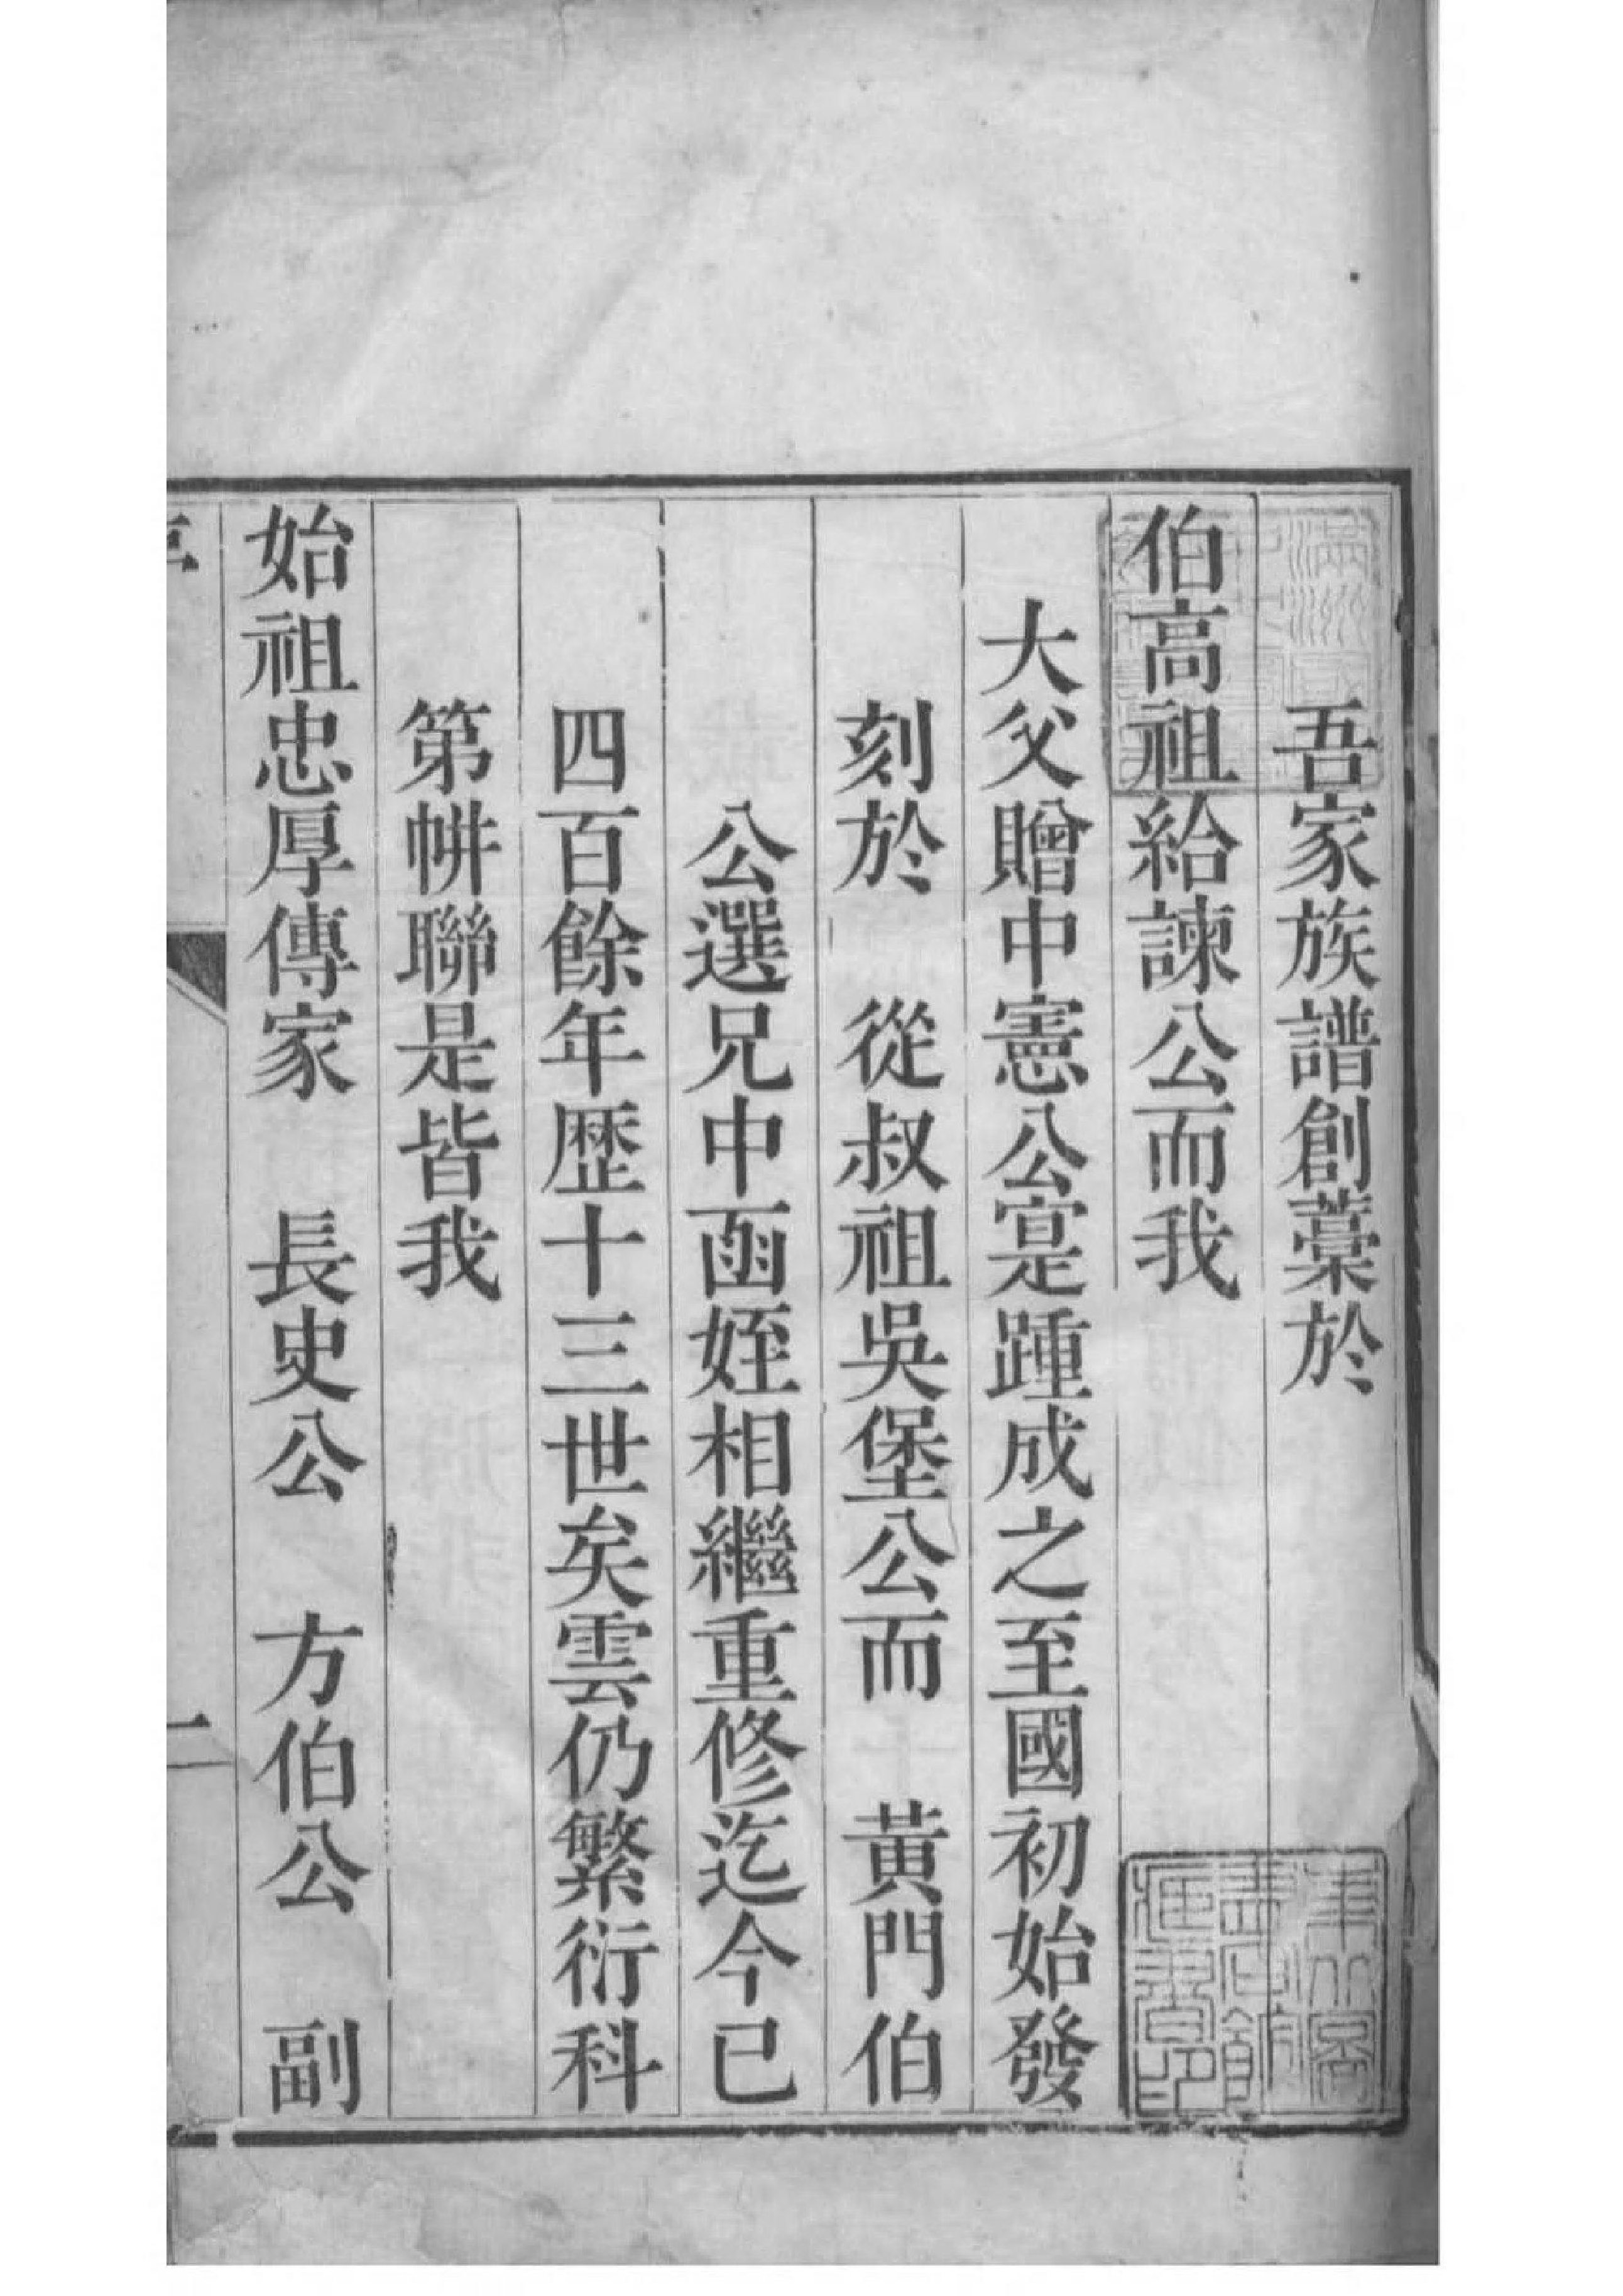 吾家族譜創藁於
伯高祖給諫公而我
大父贈中憲公寔踵成之至國初始發
刻於　從叔祖吳堡公而　黃門伯
公選兄中函姪相繼重修迄今已
四百餘年歷十三世矣雲仍繁衍科
第帡聯是皆我
始祖忠厚傳家　長史公　方伯公　副
二